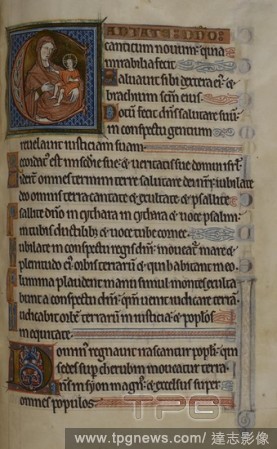 CANTATE: DNO:
canticum novum: quia
mirabilia fecit.
Salvavit sibi dextera ei: &
brachium scm eius.
Notu fecit dns salutare suu:
in conspectu gentium
revelavit iusticiam suam.
Recordat est misdie sue: & veritatis sue domui isrl.
Viderunt omnes termini terre salutare dei nri: iubilate
deo omnis terra cantate & exultate & psallite.
Psallite dno in cythara in cythara & voce psalmi:
in tubis ductilib & voce tube cornee.
Iubilate in conspectu regis dni: moveat mare &
plenitudo ei orbis terraru & qui habitant in eo.
Flumina plaudent manu simul montes exulta
bunt a conspectu dni: qm venit iudicare terra.
Iudicabit orbe terraru in iusticia: & poplos
in equitate.
Dominus regnavit irascantur popli: qui
sedes sup cherubim moveatur terra.
Dns in syon magn: & excelsus super
omnes populos.
TPG
www.tpgnews.com/ 達志影像